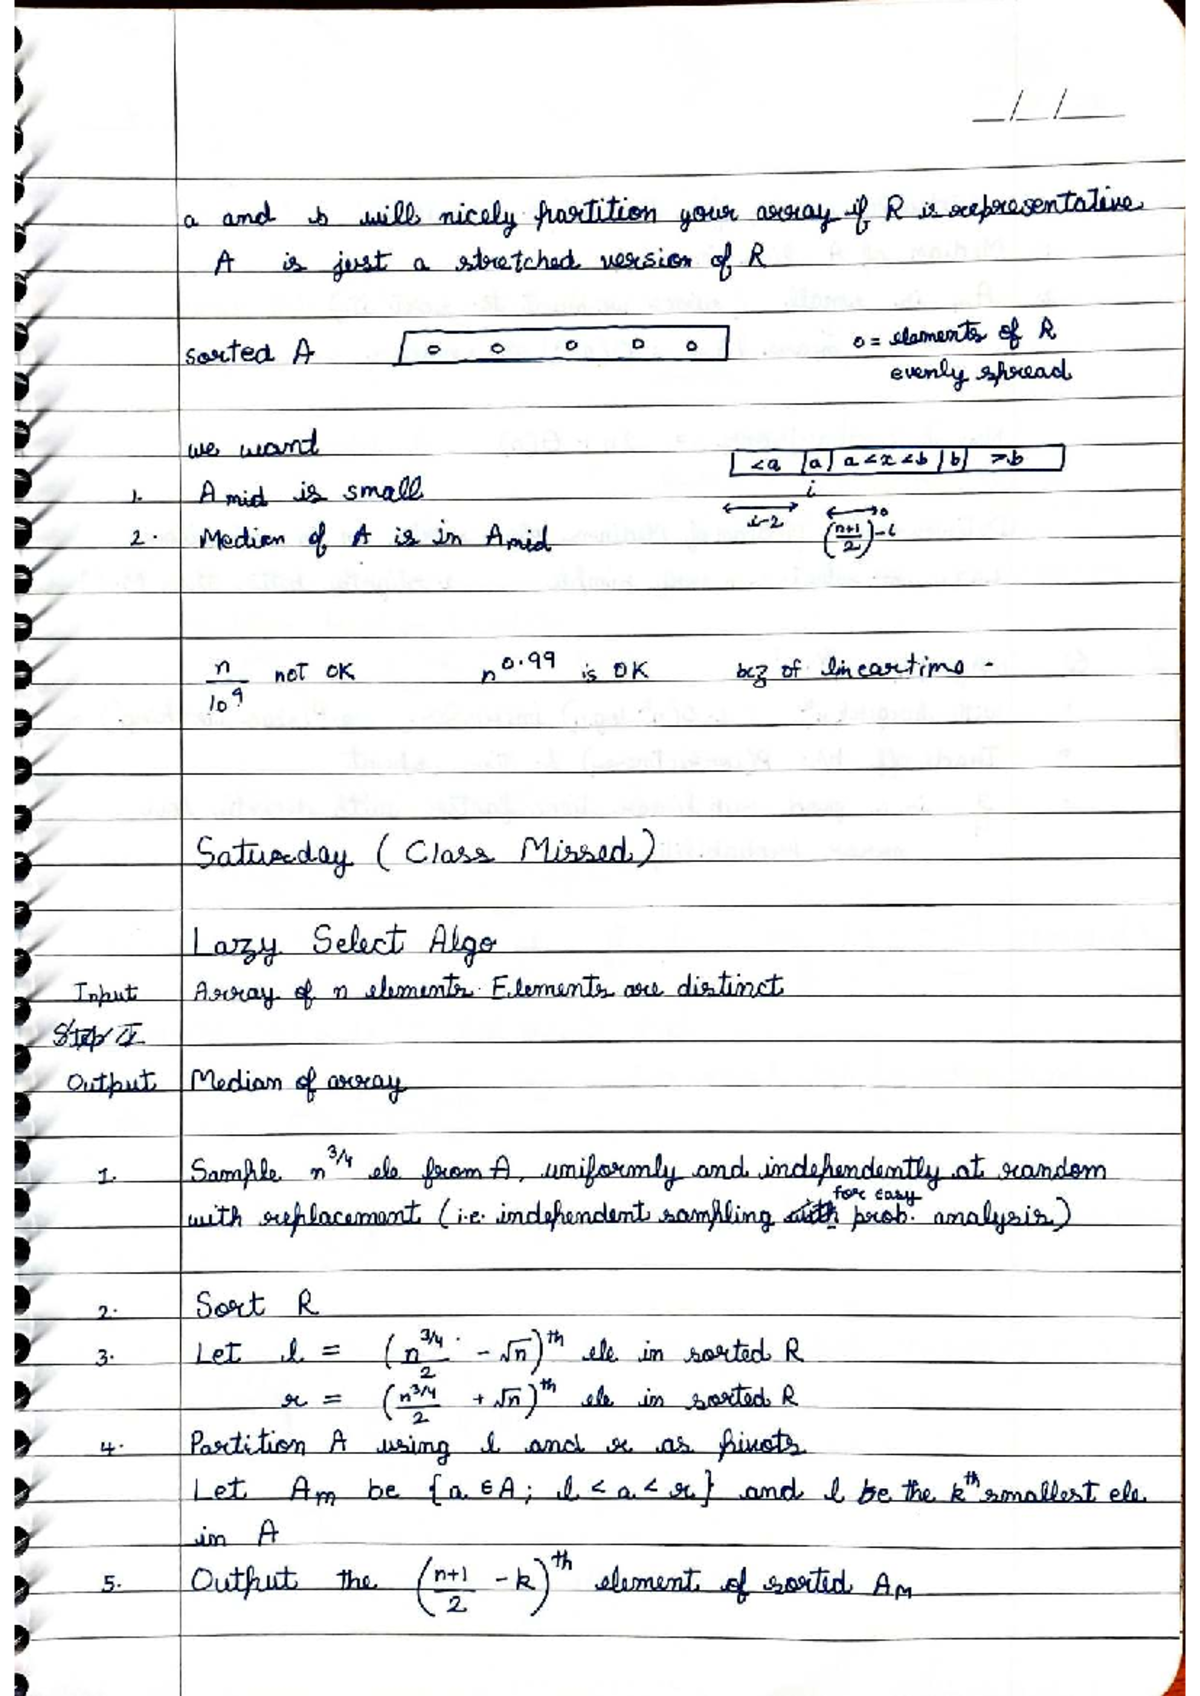 _/_/__
a and b will nicely partition your array if R is representative
A is just a stretched version of R
sorted A o o o o o o = elements of R
evenly spread
we want <a |a| a<x<b |b| >b
1. A mid is small i
2. Median of A is in Amid i-2 (n+1/2)-i
n/10^9 not OK n^0.99 is OK bcz of linear time -
Saturday ( Class Missed )
Lazy Select Algo
Input Array of n elements. Elements are distinct
Step I
Output Median of array
1. Sample n^3/4 ele from A, uniformly and independently at random
with replacement (i.e. independent sampling with for easy prob. analysis)
2. Sort R
3. Let l = (n^3/4/2 - √n)^th ele in sorted R
r = (n^3/4/2 + √n)^th ele in sorted R
4. Partition A using l and r as pivots
Let Am be {a ∈ A; l < a < r} and l be the k^th smallest ele.
in A
5. Output the (n+1/2 - k)^th element of sorted AM